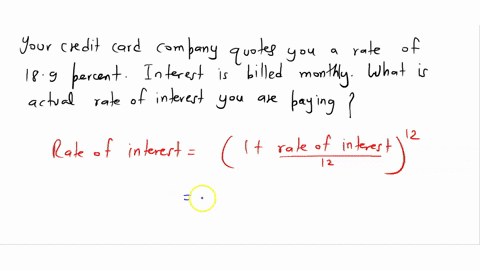 Your credit card company quotes you a rate of
18.9 percent. Interest is billed monthly. What is
actual rate of interest you are paying?
Rate of interest = (1+ rate of interest/12)^12
= .